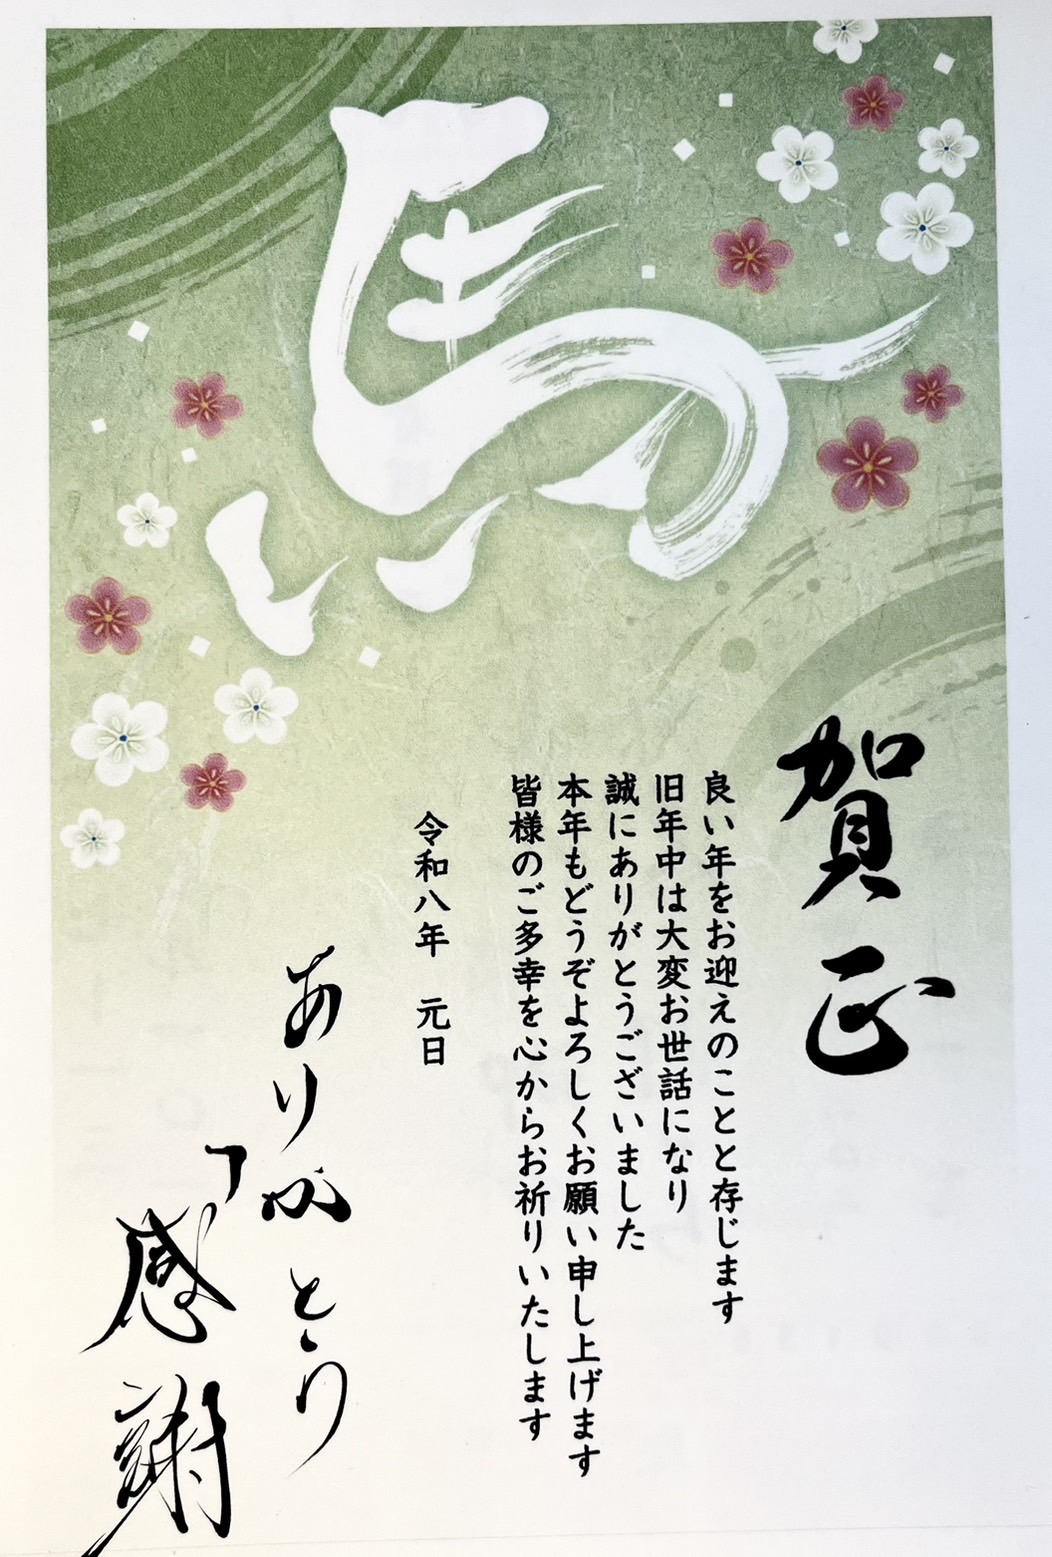 馬
賀正
良い年をお迎えのことと存じます
旧年中は大変お世話になり
誠にありがとうございました
本年もどうぞよろしくお願い申し上げます
皆様のご多幸を心からお祈りいたします
令和八年　元日
ありがとう
「感謝